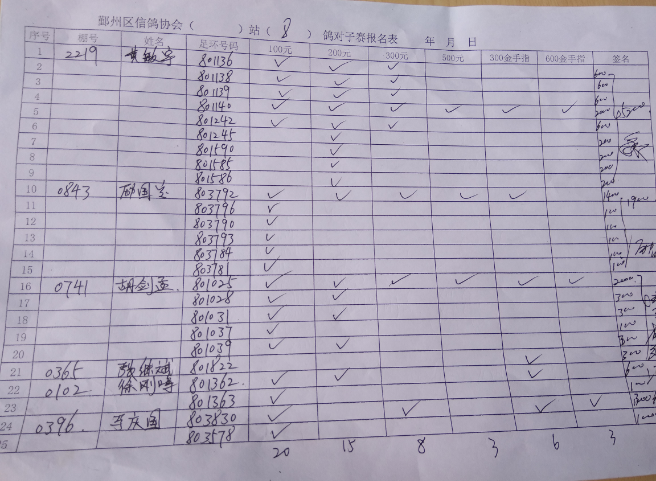 鄞州区信鸽协会（ ）站（ 8 ） 鸽对子赛报名表 年 月 日
序号 棚号 姓名 足环号码 100元 200元 300元 500元 300金手指 600金手指 签名
1 2219 801136 ✓ ✓ ✓ 600
2 801138 ✓ ✓ ✓ 600
3 801139 ✓ ✓ ✓ 600
4 801140 ✓ ✓ ✓ ✓ ✓ ✓ 2000
5 801242 ✓ ✓ ✓ 600
6 801245 ✓ 200
7 801590 ✓ 200
8 801585 ✓ 200
9 801586 ✓ 200
10 0843 803792 ✓ ✓ ✓ ✓ ✓ 1400
11 803796 ✓ 100
12 803790 ✓ 100
13 803793 ✓ 100
14 803784 ✓ 100
15 80378 ✓ 100
16 0741 胡剑孟 801025 ✓ ✓ ✓ ✓ ✓ ✓ 2000
17 801028 ✓ ✓ 300
18 801031 ✓ ✓ 300
19 801037 ✓ 100
20 801039 ✓ ✓ 300
21 0365 801822 ✓ 300
22 0102 徐刚 801362 ✓ ✓ ✓ 600
23 801363 ✓ 100
24 0396 王庆国 803830 ✓ ✓ ✓ ✓
25 803578 ✓ 100
20 15 8 3 6 3